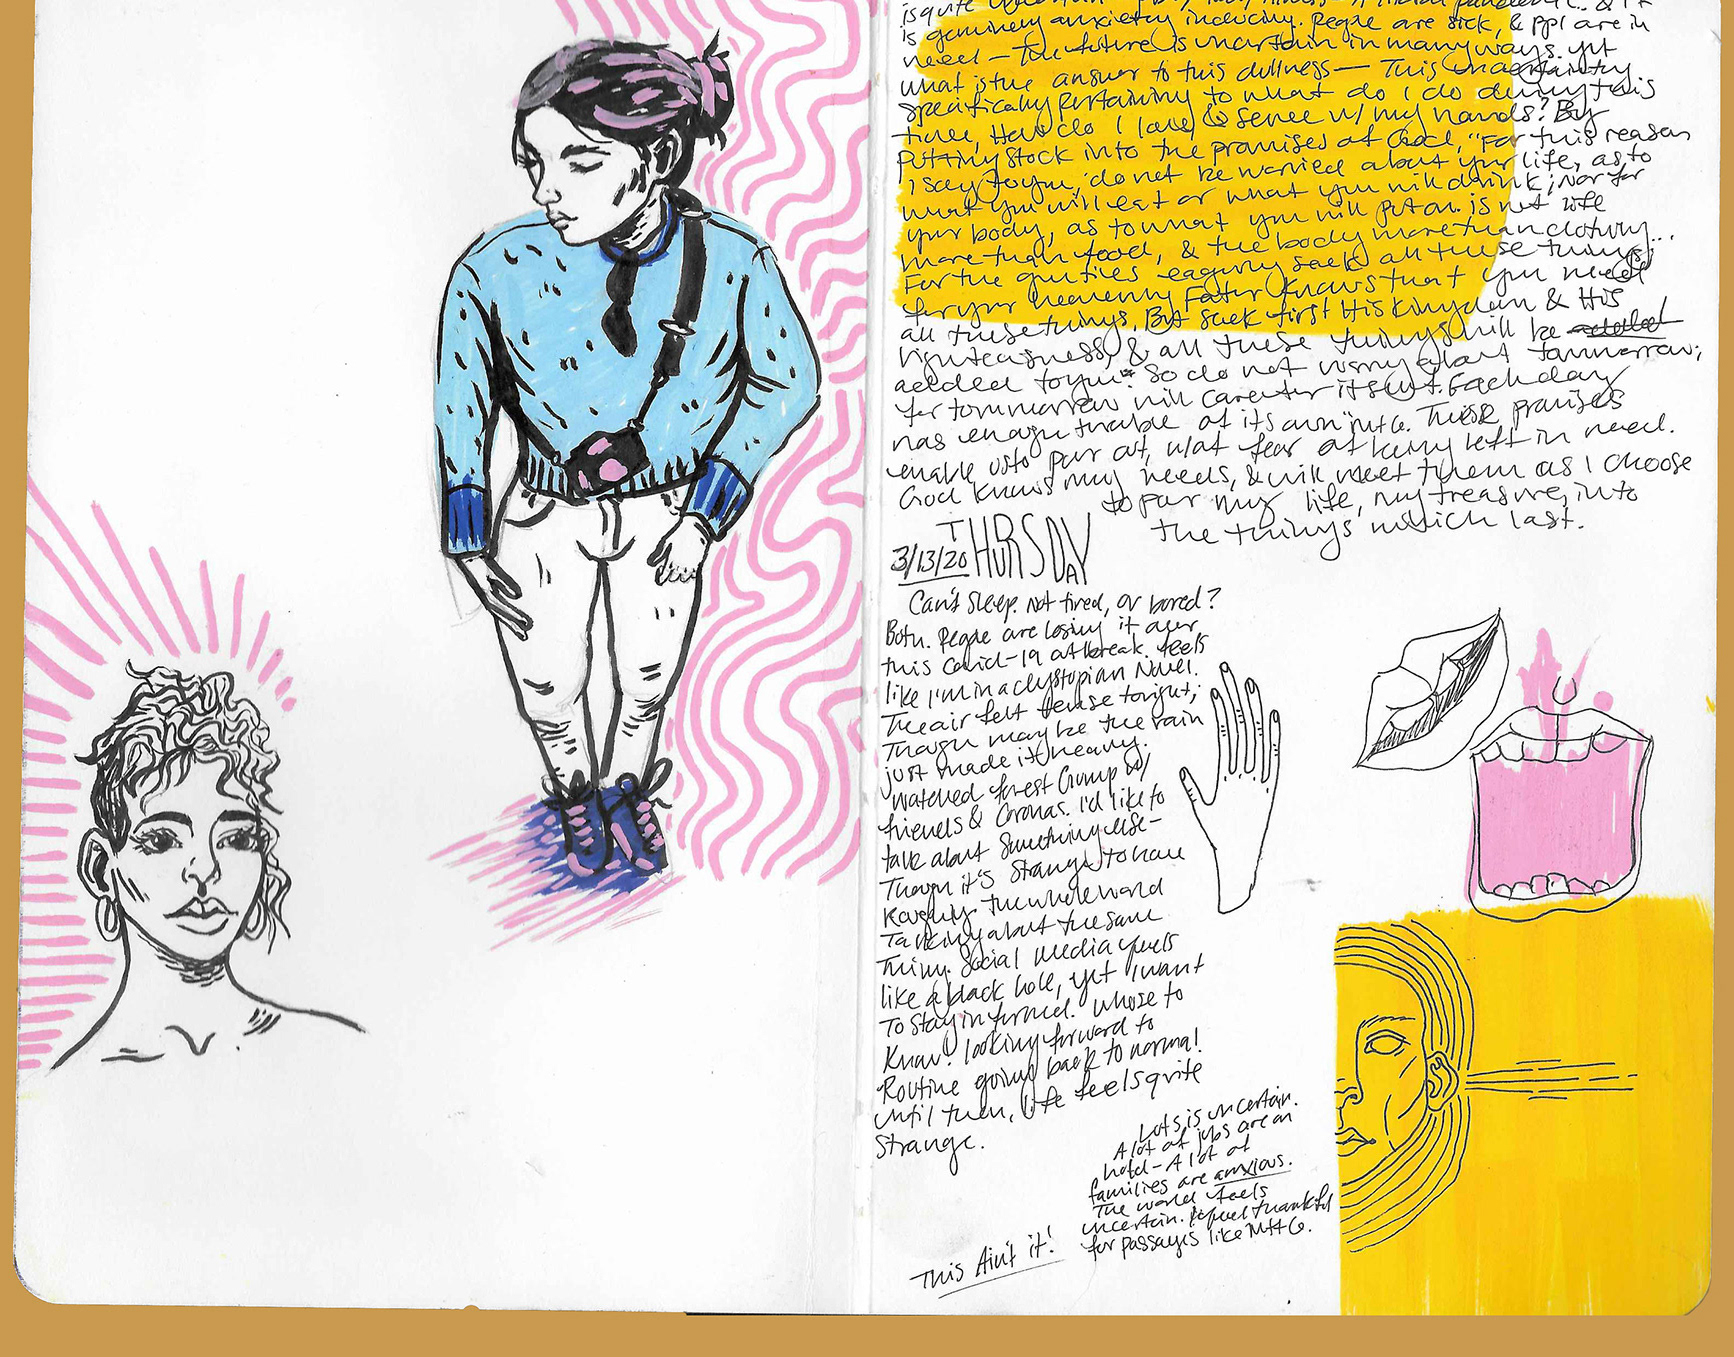 is quite uncertain
is genuinely anxiety inducing. People are sick, & ppl are in
need — The future is uncertain in many ways. yet
what is the answer to this dullness — This uncertainty
specifically pertaining to what do I do during this
time, How do I love & serve w/ my hands? By
putting stock into the promises of God, "For this reason
I say to you, do not be worried about your life, as to
what you will eat or what you will drink; Nor for
your body, as to what you will put on. is not life
more than food, & the body more than clothing...
For the gentiles eagerly seek all these things;
for your heavenly Father knows that you need
all these things, But seek first His kingdom & His
righteousness, & all these things will be added
added to you. So do not worry about tommorrow;
for tommorrow will care for itself. Each day
has enough trouble of its own" Mt 6. These promises
enable us to pour out, w/out fear of being left in need.
God knows my needs, & will meet them as I choose
to pour my life, my treasure, into
the things which last.
THURSDAY
3/13/20
Can't sleep. Not tired, or bored?
Both. People are losing it over
this Covid-19 outbreak. feels
like I'm in a dystopian Novel.
The air felt tense tonight;
Though maybe the rain
just made it heavy.
Watched Forest Gump w/
friends & Coronas. I'd like to
talk about something else—
Though it's strange to have
Roughly the whole world
Talking about the same
Thing. Social Media feels
like a black hole, yet I want
To stay informed. Whose to
Know? looking forward to
Routine going back to normal
until then, life feels quite
Strange.
Lots is uncertain.
A lot of jobs are on
hold - A lot of
families are anxious.
The world feels
uncertain. I feel thankful
for passages like Mt 6.
This Ain't it!